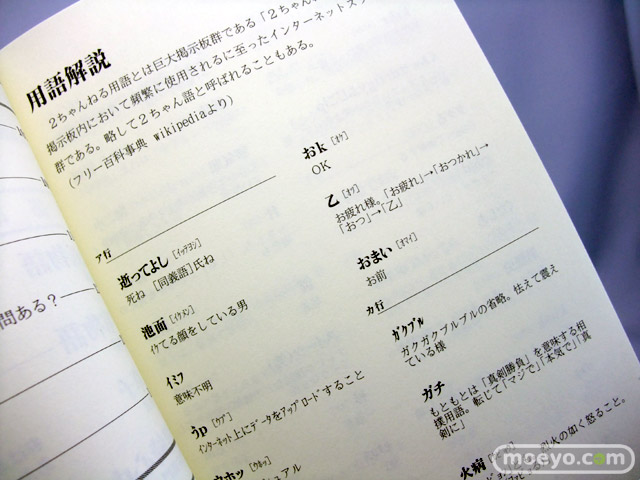 用語解説
2ちゃんねる用語とは巨大掲示板群である「2ちゃんね
掲示板内において頻繁に使用されるに至ったインターネットスラ
群である。略して2ちゃん語と呼ばれることもある。
(フリー百科事典 wikipediaより)
ア行
逝ってよし [イッテヨシ]
死ね [同義語] 氏ね
池面 [イケメン]
イケてる顔をしている男
イミフ
意味不明
うp [ウプ]
インターネット上にデータをアップロードすること
ウホッ [ウホッ]
おk [オケ]
OK
乙 [オツ]
お疲れ様。「お疲れ」→「おつかれ」→
「おつ」→「乙」
おまい [オマイ]
お前
カ行
ガクブル
ガクガクブルブルの省略。怯えて震え
ている様
ガチ
もともとは「真剣勝負」を意味する相
撲用語。転じて「マジで」「本気で」「真
剣に」
火病
火の如く怒ること。
問ある?
moeyo.com